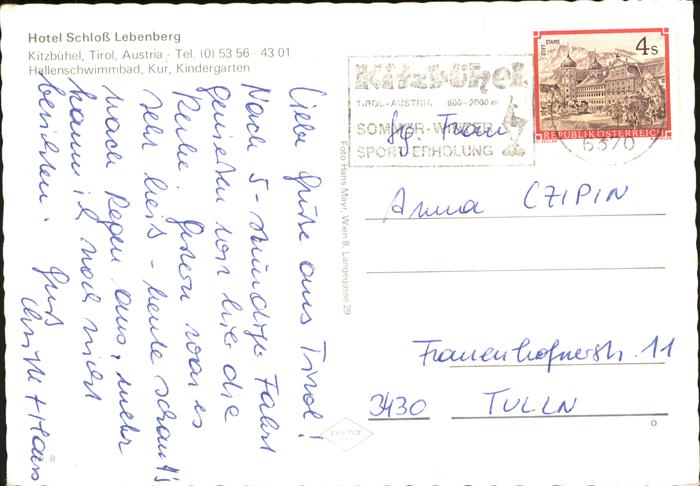 Hotel Schloß Lebenberg
Kitzbühel, Tirol, Austria · Tel. (0) 53 56 · 43 01
Hallenschwimmbad, Kur, Kindergarten
Liebe Grüße aus Tirol!
Nach 5-stündiger Fahrt
genießen wir hier die
Ruhe. Gestern war es
sehr heiß - heute schaut's
nach Regen aus, mehr
kann ich noch nicht
berichten. Gruß
Christl + Hans
Foto Hans Mayr, Wien 8, Langegasse 29
Kitzbühel
TIROL-AUSTRIA 800-2000 m
SOMMER-WINTER
SPORT ERHOLUNG
STIFT STAMS
4 S
REPUBLIK ÖSTERREICH
6370
Sg. Frau
Anna CZIPIN
Frauenhofnerstr. 11
3430 TULLN
8